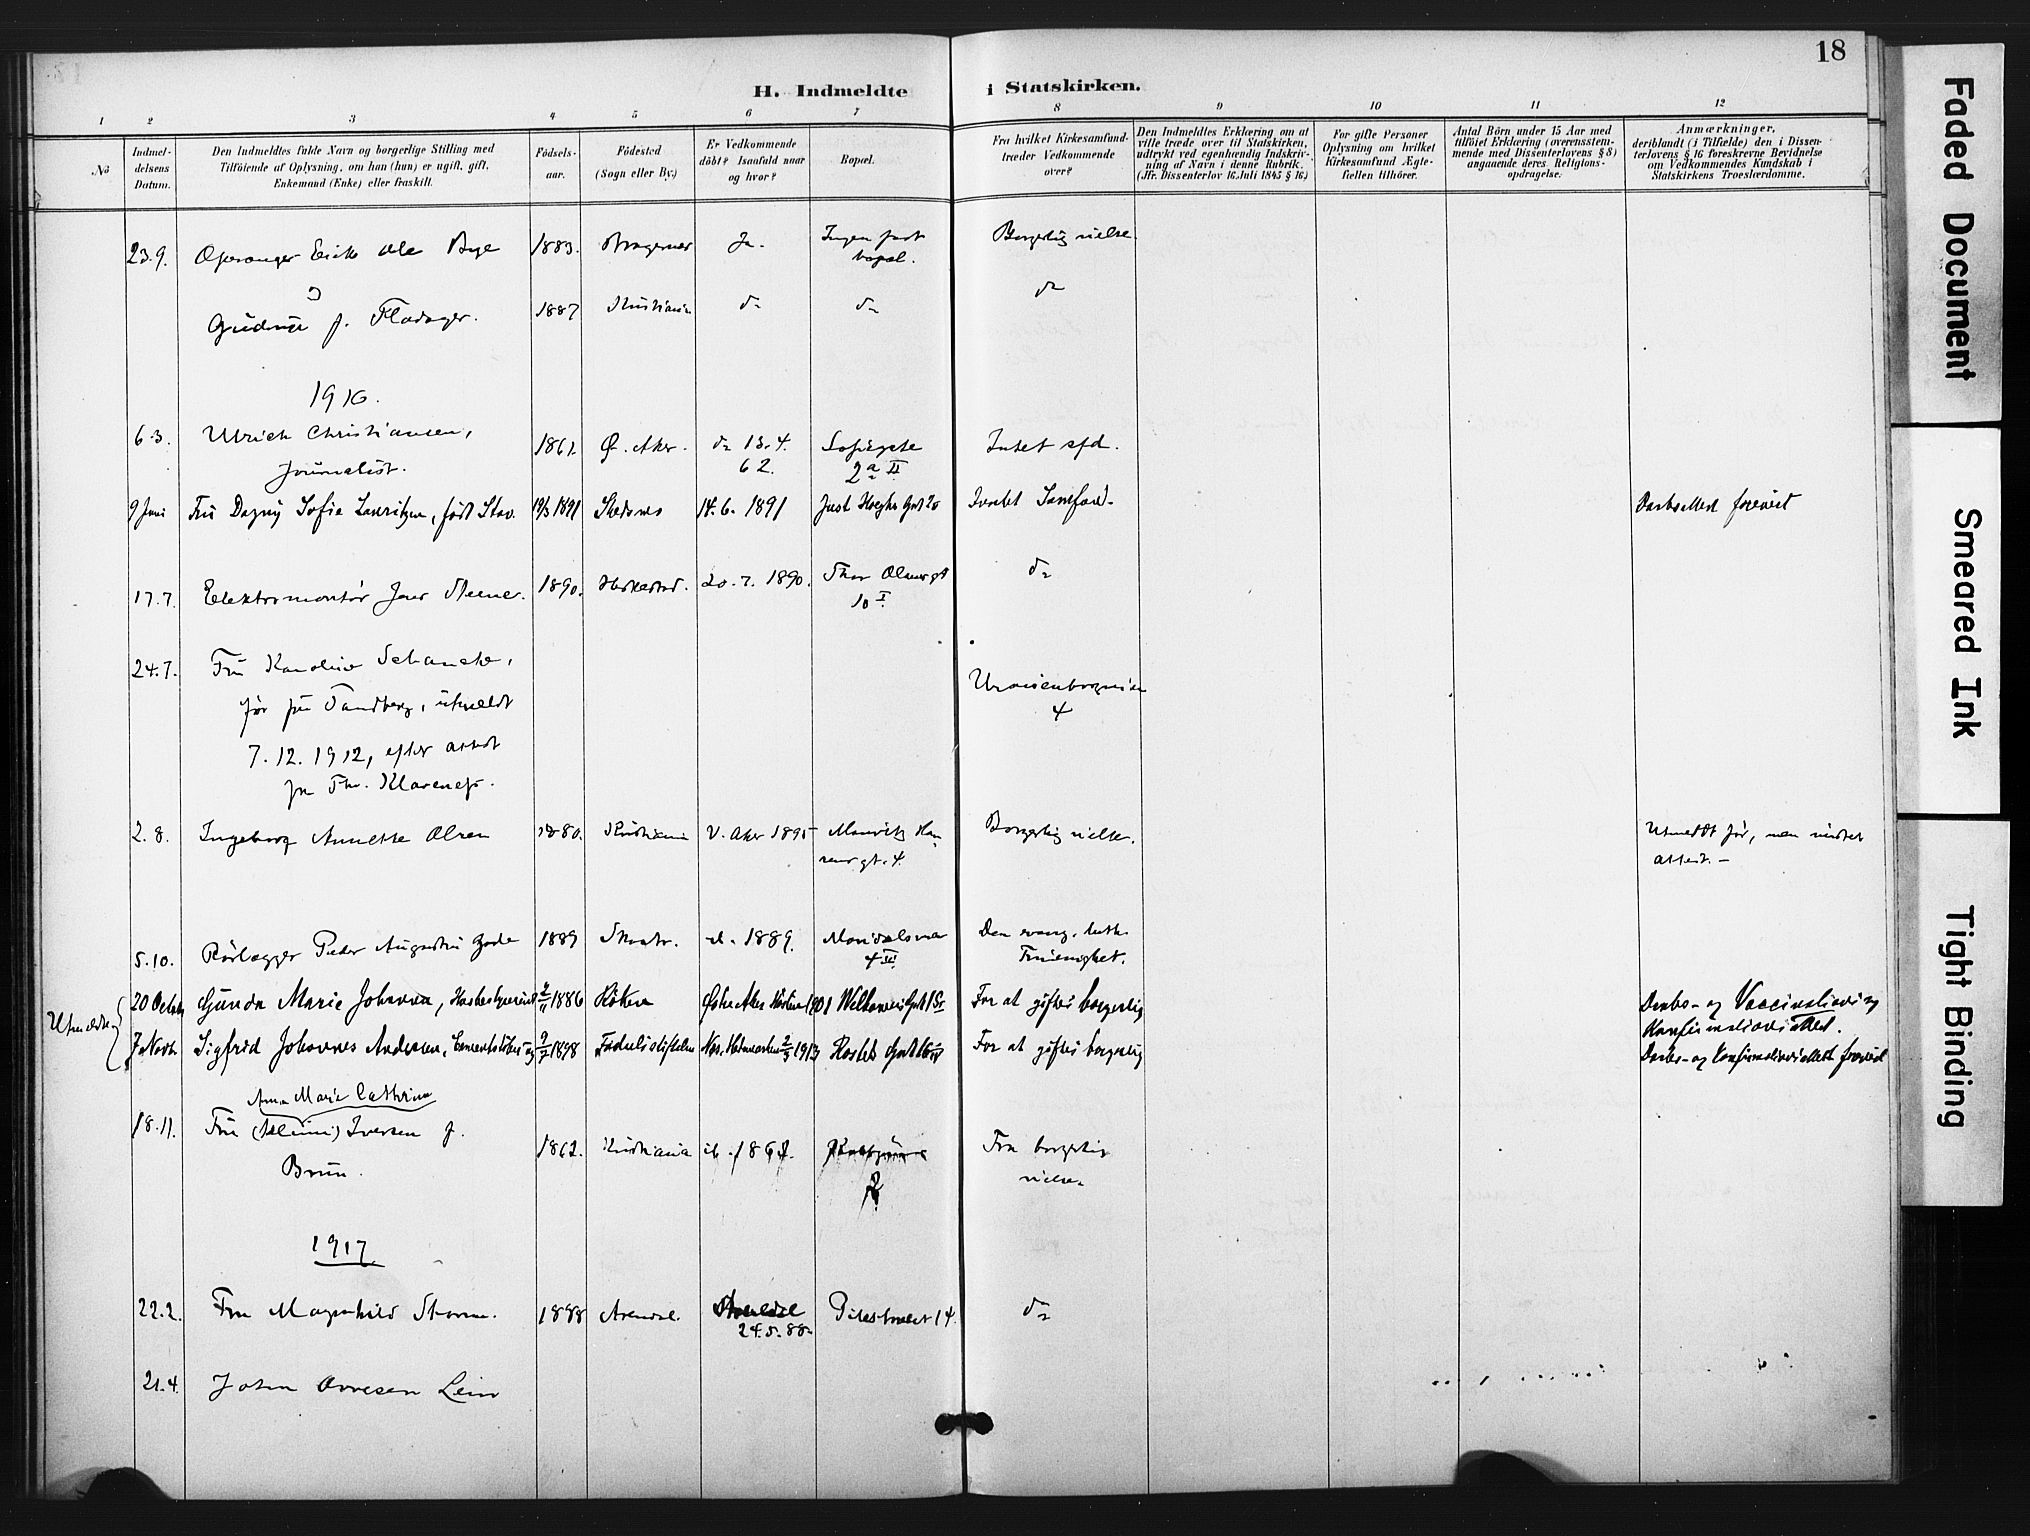 18
H. Indmeldte i Statskirken.
1 2 3 4 5 6 7 8 9 10 11 12
No
Indmel-
delsens
Datum.
Den Indmeldtes fulde Navn og borgerlige Stilling med
Tilföiende af Oplysning, om han (hun) er ugift, gift,
Enkemand (Enke) eller fraskilt.
Födsels-
aar.
Födested
(Sogn eller By.)
Er Vedkommende
döbt? Isaafald naar
og hvor?
Bopæl.
Fra hvilket Kirkesamfund
træder Vedkommende
over?
Den Indmeldtes Erklæring om at
ville træde over til Statskirken,
udtrykt ved egenhændig Indskriv-
ning af Navn i denne Rubrik.
(Jfr. Dissenterlov 16 Juli 1845 § 16.)
For gifte Personer
Oplysning om hvilket
Kirkesamfund Ægte-
fællen tilhörer.
Antal Börn under 15 Aar med
tilföiet Erklæring (overensstem-
mende med Dissenterlovens § 8)
angaaende deres Religions-
opdragelse.
Anmærkninger,
deriblandt (i Tilfælde) den i Dissen-
terlovens § 16 foreskrevne Bevidnelse
om Vedkommendes Kundskab i
Statskirkens Troeslærdomme.
23.9. Operasanger Eirik Ole Bye 1883. Bragernes Ja. Ingen fast Borgerlig vielse
bopæl.
Gudrun f. Fladager. 1887 Kristiania do do do
1916.
6.3. Ulrich Christiansen, 1861. Ø. Aker. do 13.4. Sofiegate Intet sfd.
journalist. 62. 2a II
9 Juni Fru Dagny Sofie Lauritzen, født Stav. 19/3 1891 Skedsmo 14.6.1891 Just Høeghs Gt 20 Intet Samfund. Daabsattest forevist
17.7. Elektromontör Jens Steene. 1890. 20.7.1890. Thor Olsens gt do
10 I.
24.7. Fru Karoline Schancke,
før fru Sandberg, utmeldt Uranienborgveien
7.12.1912, efter attest 4
fra Thv. Klaveness.
2.8. Ingeborg Annette Olsen 80. Kristiania V. Aker 1895 Mauritz Han Borgerlig vielse. Utmeldt før, men mistet
sens gt. 4. attest.-
5.10. Rörlægger Peder Augustin 1889 d. 1889. Maridalsvei Den evang. luth.
4 III. Frimenighet.
Utmeldte
20 Octob Gunda Marie Johansen, 1886 Röken Østre Aker For at giftes borgerlig Daabs- og Vaccinations og
Konfirmationsattest.
7 Novbr. Sigfrid Johannes Andersen, 1898 Fødselsstiftelsen 1913 For at giftes borgerlig Daabs- og Konfirmationsattest forevist
Anna Marie Cathrine
18.11. Fru Iversen f. 1862. Kristiania Fra borgerlig
Brun. vielse.
1917
22.2. Fru Magnhild Storm. 1888 Arendal. Pilestrædet 14. do
24.5.88.
21.4. John Ovesen Lein
Faded Document
Smeared Ink
Tight Binding